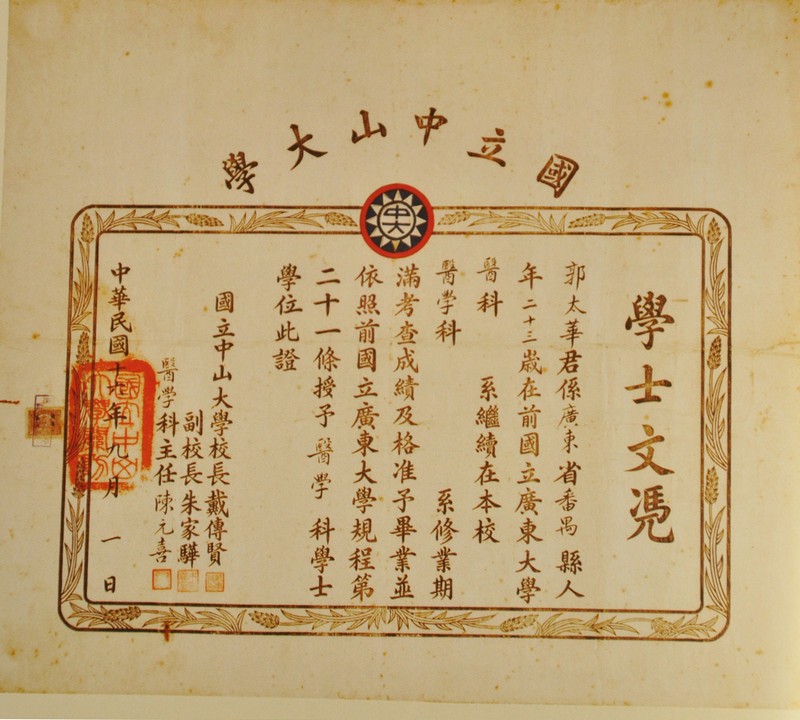 國立中山大學
學士文憑
郭太華君係廣東省番禺縣人
年二十三歲在前國立廣東大學
醫科 系繼續在本校
醫學科 系修業期
滿考查成績及格准予畢業並
依照前國立廣東大學規程第
二十一條授予醫學科學士
學位此證
國立中山大學校長戴傳賢
副校長朱家驊
醫學科主任陳元喜
中華民國十六年九月一日